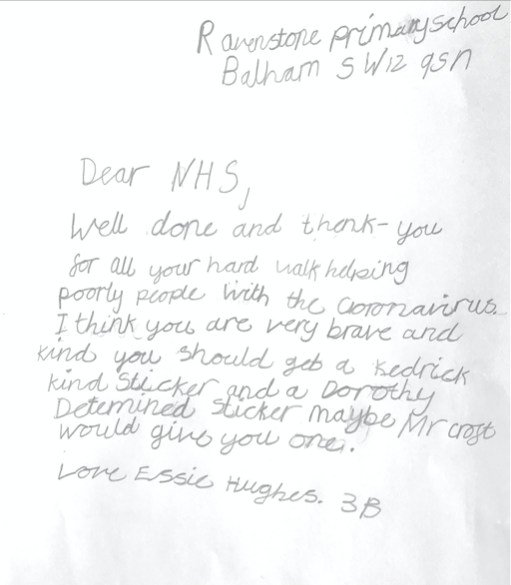 Ravenstone primary school
Balham SW12 9SN
Dear NHS,
Well done and thank-you
for all your hard walk helping
poorly people with the coronavirus.
I think you are very brave and
kind you should get a Kedrick
kind Sticker and a Dorothy
Detemined sticker maybe Mr croft
would give you one.
Love Essie Hughes. 3B